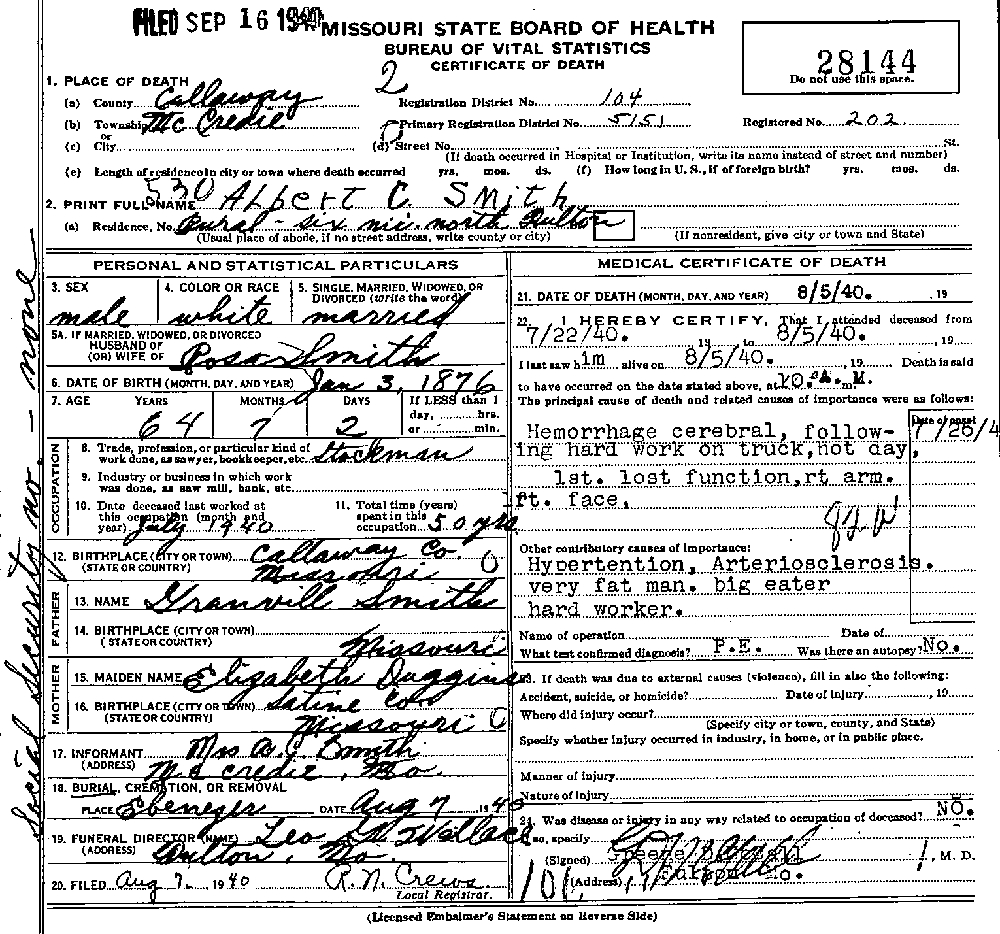 FILED SEP 16 1940
MISSOURI STATE BOARD OF HEALTH
BUREAU OF VITAL STATISTICS
CERTIFICATE OF DEATH
28144
Do not use this space.
2
1. PLACE OF DEATH
(a) County Callaway
Registration District No. 104
(b) Township McCredie
Primary Registration District No. 5151
Registered No. 202
or
(c) City
(d) Street No. St.
(If death occurred in Hospital or Institution, write its name instead of street and number)
(e) Length of residence in city or town where death occurred yrs. mos. ds. (f) How long in U. S., if of foreign birth? yrs. mos. ds.
530
2. PRINT FULL NAME Albert C. Smith
(a) Residence, No. Rural - six mi. north Fulton
(Usual place of abode, if no street address, write county or city) (If nonresident, give city or town and State)
PERSONAL AND STATISTICAL PARTICULARS
3. SEX male
4. COLOR OR RACE white
5. SINGLE, MARRIED, WIDOWED, OR DIVORCED (write the word) married
5A. IF MARRIED, WIDOWED, OR DIVORCED
HUSBAND OF
(OR) WIFE OF Rosa Smith
6. DATE OF BIRTH (MONTH, DAY, AND YEAR) Jan 3, 1876
7. AGE YEARS MONTHS DAYS If LESS than 1
day, hrs.
or min.
64 7 2
OCCUPATION
8. Trade, profession, or particular kind of
work done, as sawyer, bookkeeper, etc. Stockman
9. Industry or business in which work
was done, as saw mill, bank, etc.
10. Date deceased last worked at
this occupation (month and
year) July 1940
11. Total time (years)
spent in this
occupation 50 yrs
12. BIRTHPLACE (CITY OR TOWN) Callaway Co.
(STATE OR COUNTRY) Missouri
FATHER
13. NAME Granvill Smith
14. BIRTHPLACE (CITY OR TOWN)
(STATE OR COUNTRY) Missouri
MOTHER
15. MAIDEN NAME Elizabeth Duggins
16. BIRTHPLACE (CITY OR TOWN) Saline Co
(STATE OR COUNTRY) Missouri
17. INFORMANT Mrs A. C. Smith
(ADDRESS) McCredie, Mo.
18. BURIAL, CREMATION, OR REMOVAL
PLACE Ebenezer DATE Aug 7 1940
19. FUNERAL DIRECTOR (NAME) Leo Wallace
(ADDRESS) Fulton, Mo.
20. FILED Aug 7, 1940 R. N. Crews
Local Registrar.
Social Security no. - none
MEDICAL CERTIFICATE OF DEATH
21. DATE OF DEATH (MONTH, DAY, AND YEAR) 8/5/40. , 19
22. I HEREBY CERTIFY, That I attended deceased from
7/22/40. , 19 to 8/5/40. , 19
I last saw him alive on 8/5/40. , 19 Death is said
to have occurred on the date stated above, at 10. A. m. M.
The principal cause of death and related causes of importance were as follows:
Date of onset
Hemorrhage cerebral, follow-
ing hard work on truck, hot day,
1st. lost function, rt arm.
rt. face,
Other contributory causes of importance:
Hypertention, Arteriosclerosis.
very fat man. big eater
hard worker.
Name of operation Date of
What test confirmed diagnosis? P.E. Was there an autopsy? No.
23. If death was due to external causes (violence), fill in also the following:
Accident, suicide, or homicide? Date of injury , 19
Where did injury occur?
(Specify city or town, county, and State)
Specify whether injury occurred in industry, in home, or in public place.
Manner of injury
Nature of injury
24. Was disease or injury in any way related to occupation of deceased? NO.
If so, specify
(Signed) , M. D.
(Address) Fulton Mo.
(Licensed Embalmer's Statement on Reverse Side)